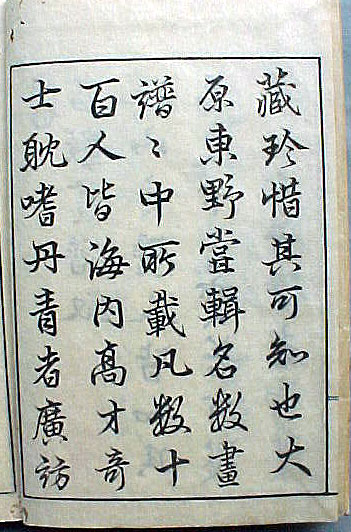 藏珍惜其可知也大
原東野嘗輯名數畫
譜〻中所載凡数十
百人皆海内高才奇
士耽嗜丹青者廣訪